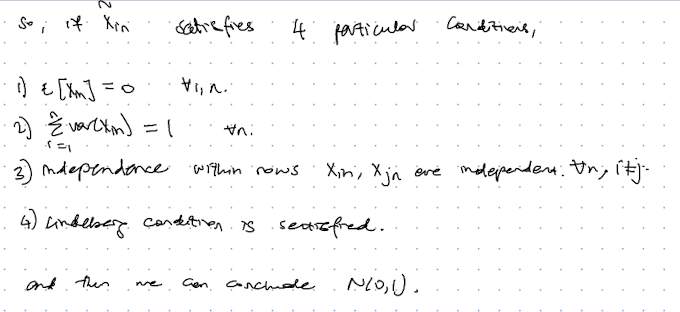 N
So, if Xin satisfies 4 particular conditions,
1) E[Xin] = 0 ∀i,n.
2) Σⁿᵢ₌₁ var(Xin) = 1 ∀n.
3) Independence within rows Xin, Xjn are independent. ∀n, i≠j.
4) Lindeberg condition is satisfied.
and then we can conclude N(0,1).